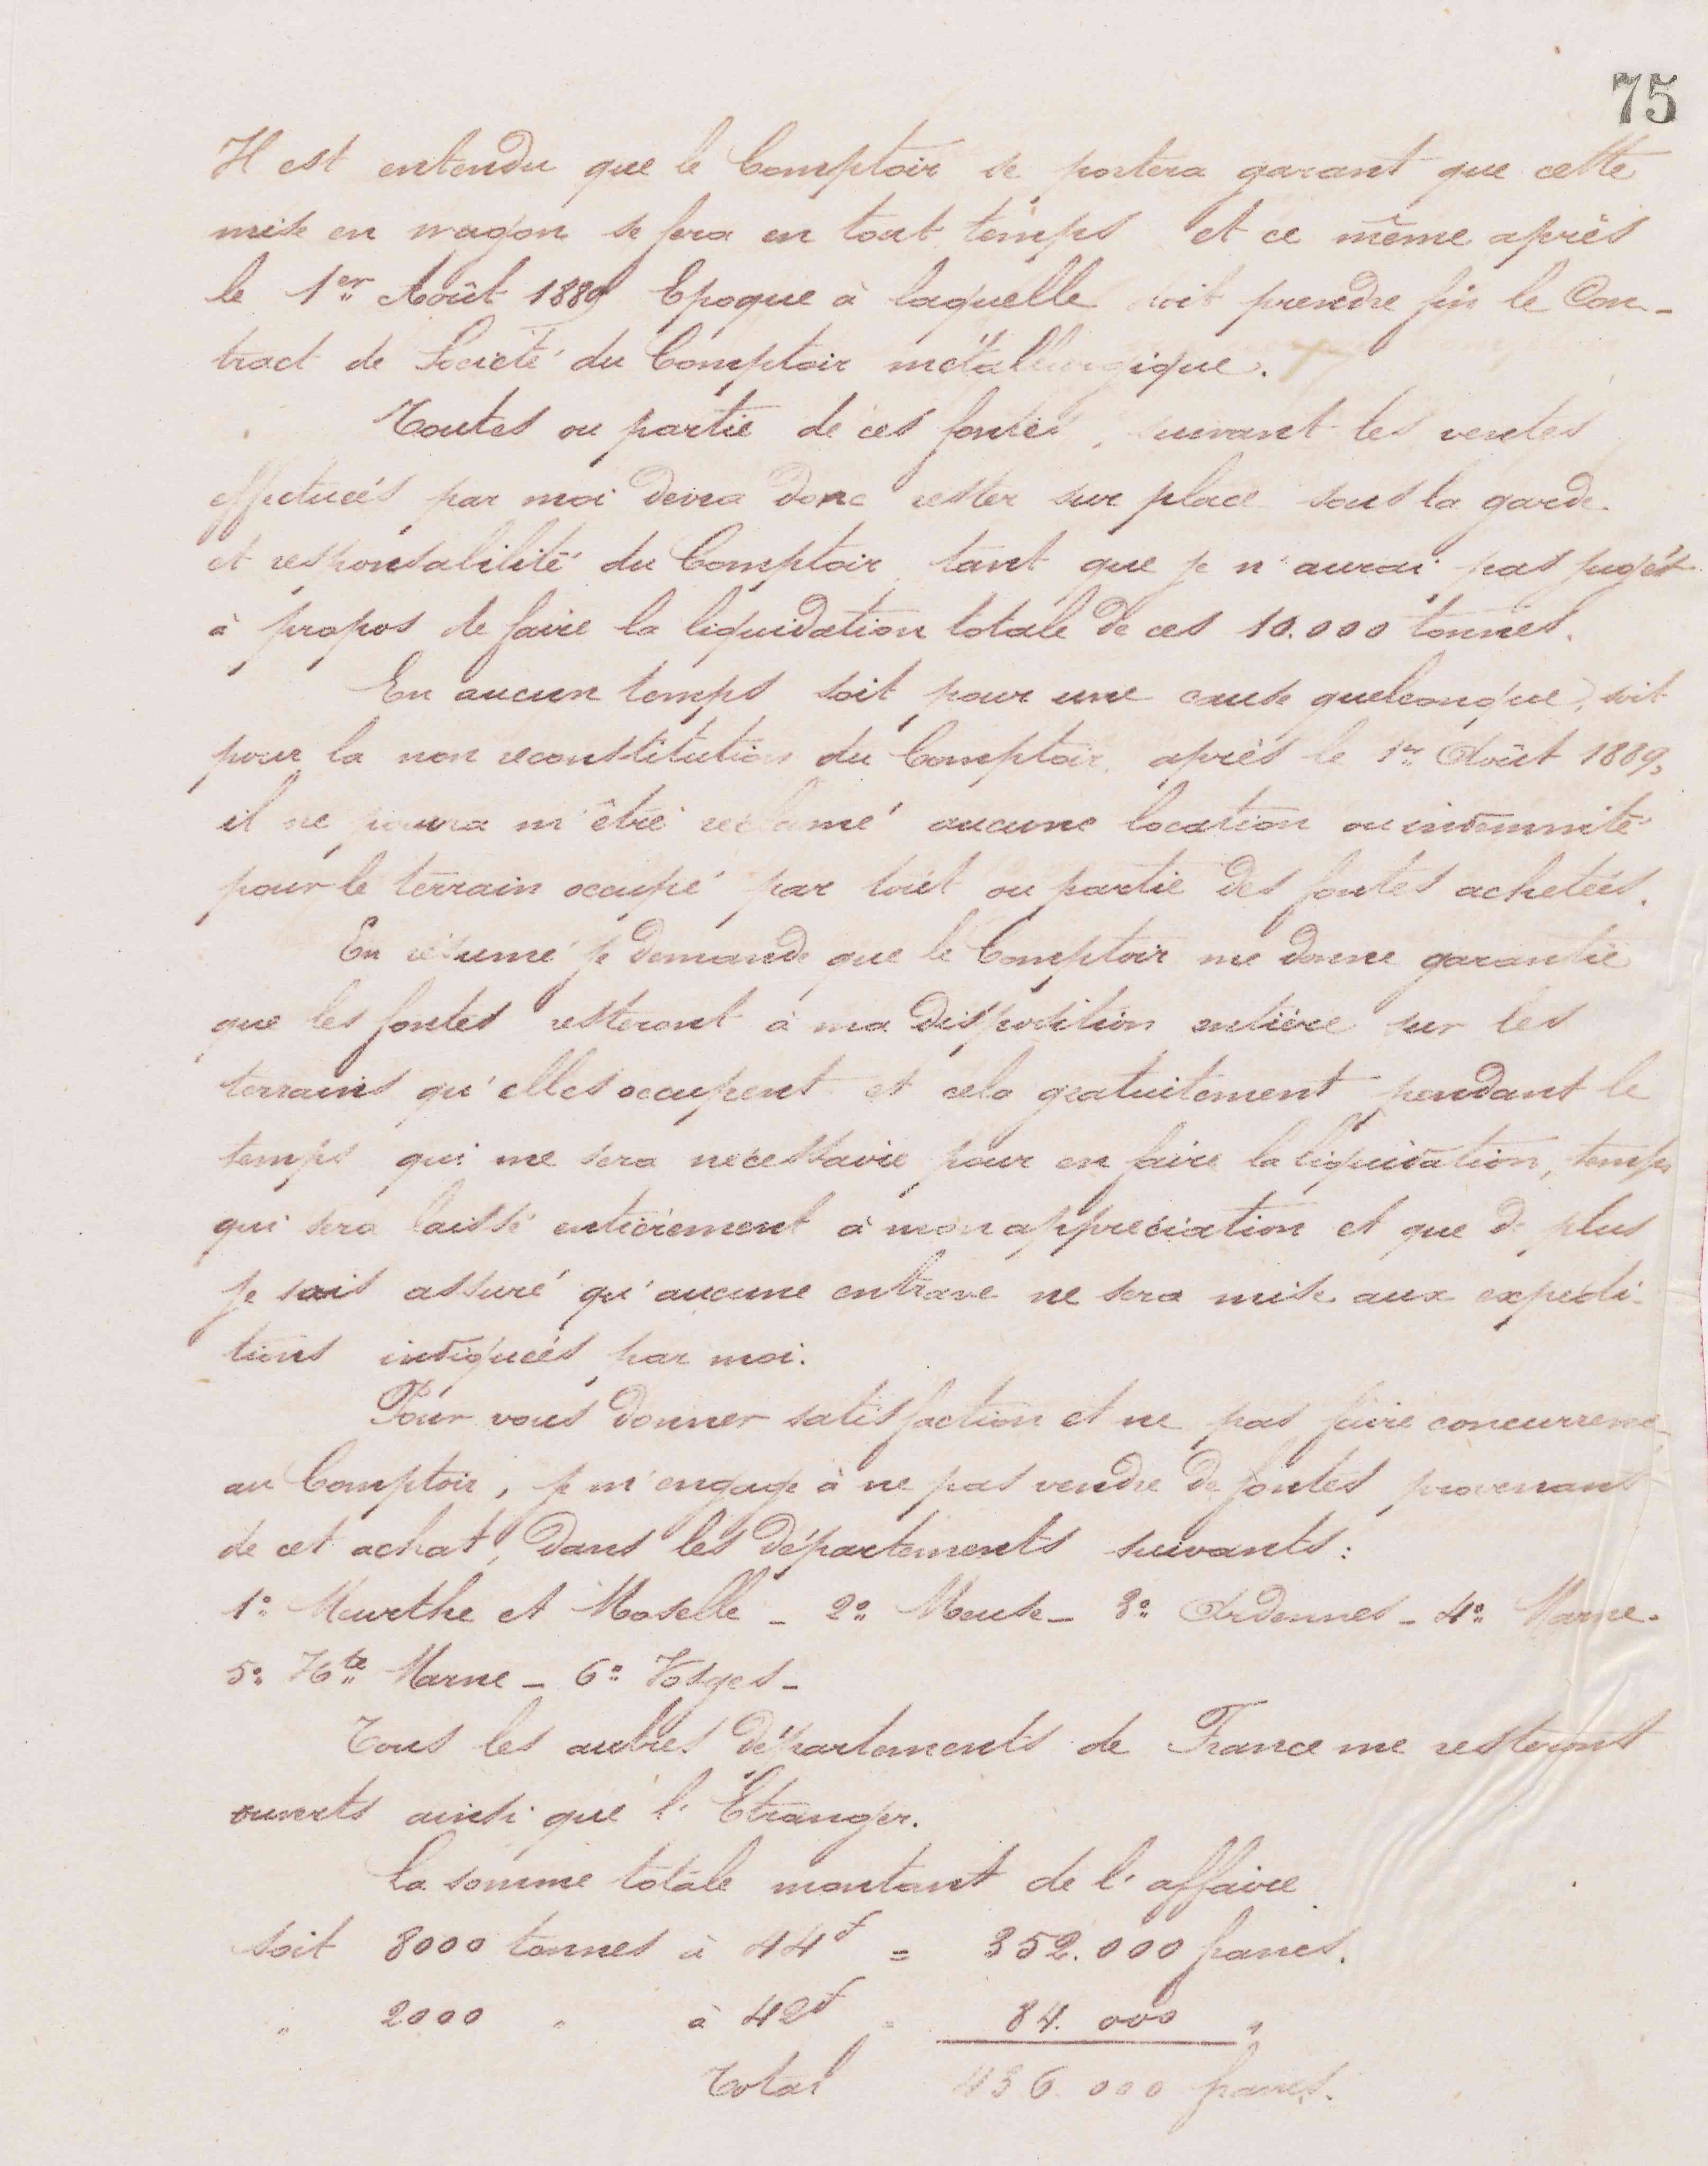 75
Il est entendu que le Comptoir se portera garant que cette
mise en wagon se fera en tout temps et ce même après
le 1er Août 1889 Epoque à laquelle doit prendre fin le Con-
tract de Société du Comptoir métallurgique.
Toutes ou partie de ces fontes, suivant les ventes
effectuées par moi devra donc rester sur place sous la garde
et responsabilité du Comptoir tant que je n'aurai pas jugé
à propos de faire la liquidation totale de ces 10.000 tonnes.
En aucun temps soit pour une cause quelconque, soit
pour la non reconstitution du Comptoir après le 1er Août 1889,
il ne pourra m'être réclamé aucune location ou indemnité
pour le terrain occupé par tout ou partie des fontes achetées.
En résumé je demande que le Comptoir me donne garantie
que les fontes resteront à ma disposition entière sur les
terrains qu'elles occupent et cela gratuitement pendant le
temps qui me sera nécessaire pour en faire la liquidation, temps
qui sera laissé entièrement à mon appréciation et que de plus
je sois assuré qu'aucune entrave ne sera mise aux expédi-
tions indiquées par moi.
Pour vous donner satisfaction et ne pas faire concurrence
au Comptoir, je m'engage à ne pas vendre de fontes provenant
de cet achat, dans les départements suivants:
1° Meurthe et Moselle - 2° Meuse - 3° Ardennes - 4° Marne -
5° Hte Marne - 6° Vosges -
Tous les autres départements de France me resteront
ouverts ainsi que l'Etranger.
La somme totale montant de l'affaire
soit 8000 tonnes à 44f = 352.000 francs.
" 2000 " à 42f = 84.000 "
Total 436.000 francs.